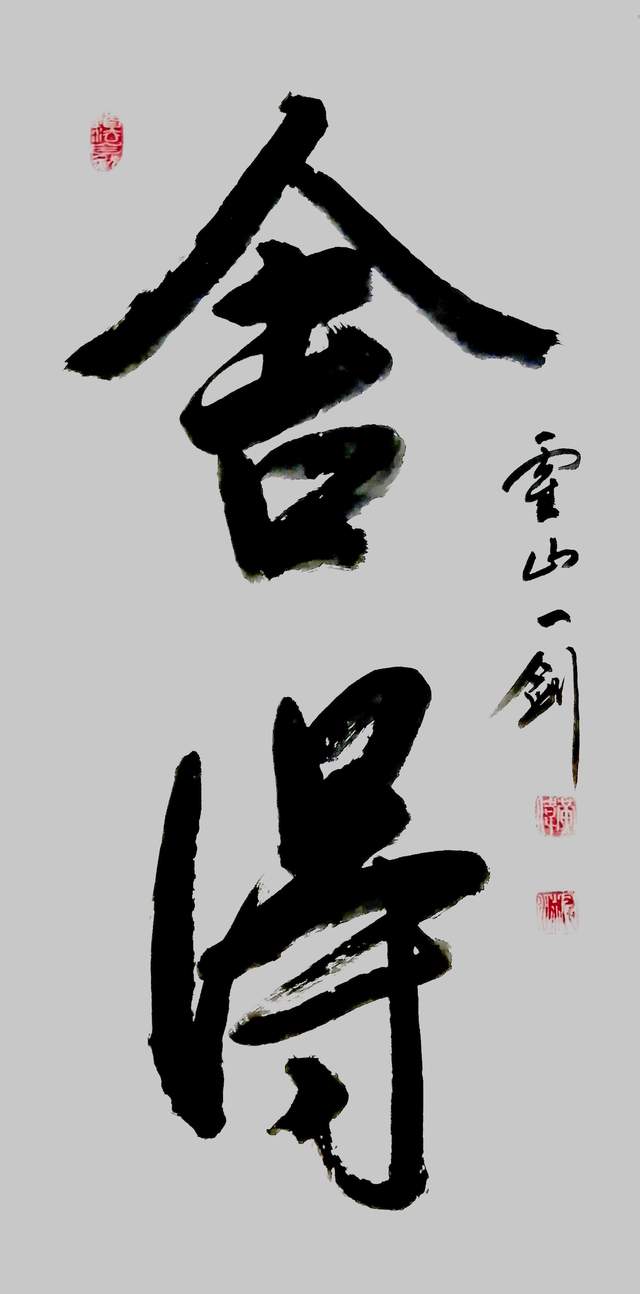 舍得
霍山一剑